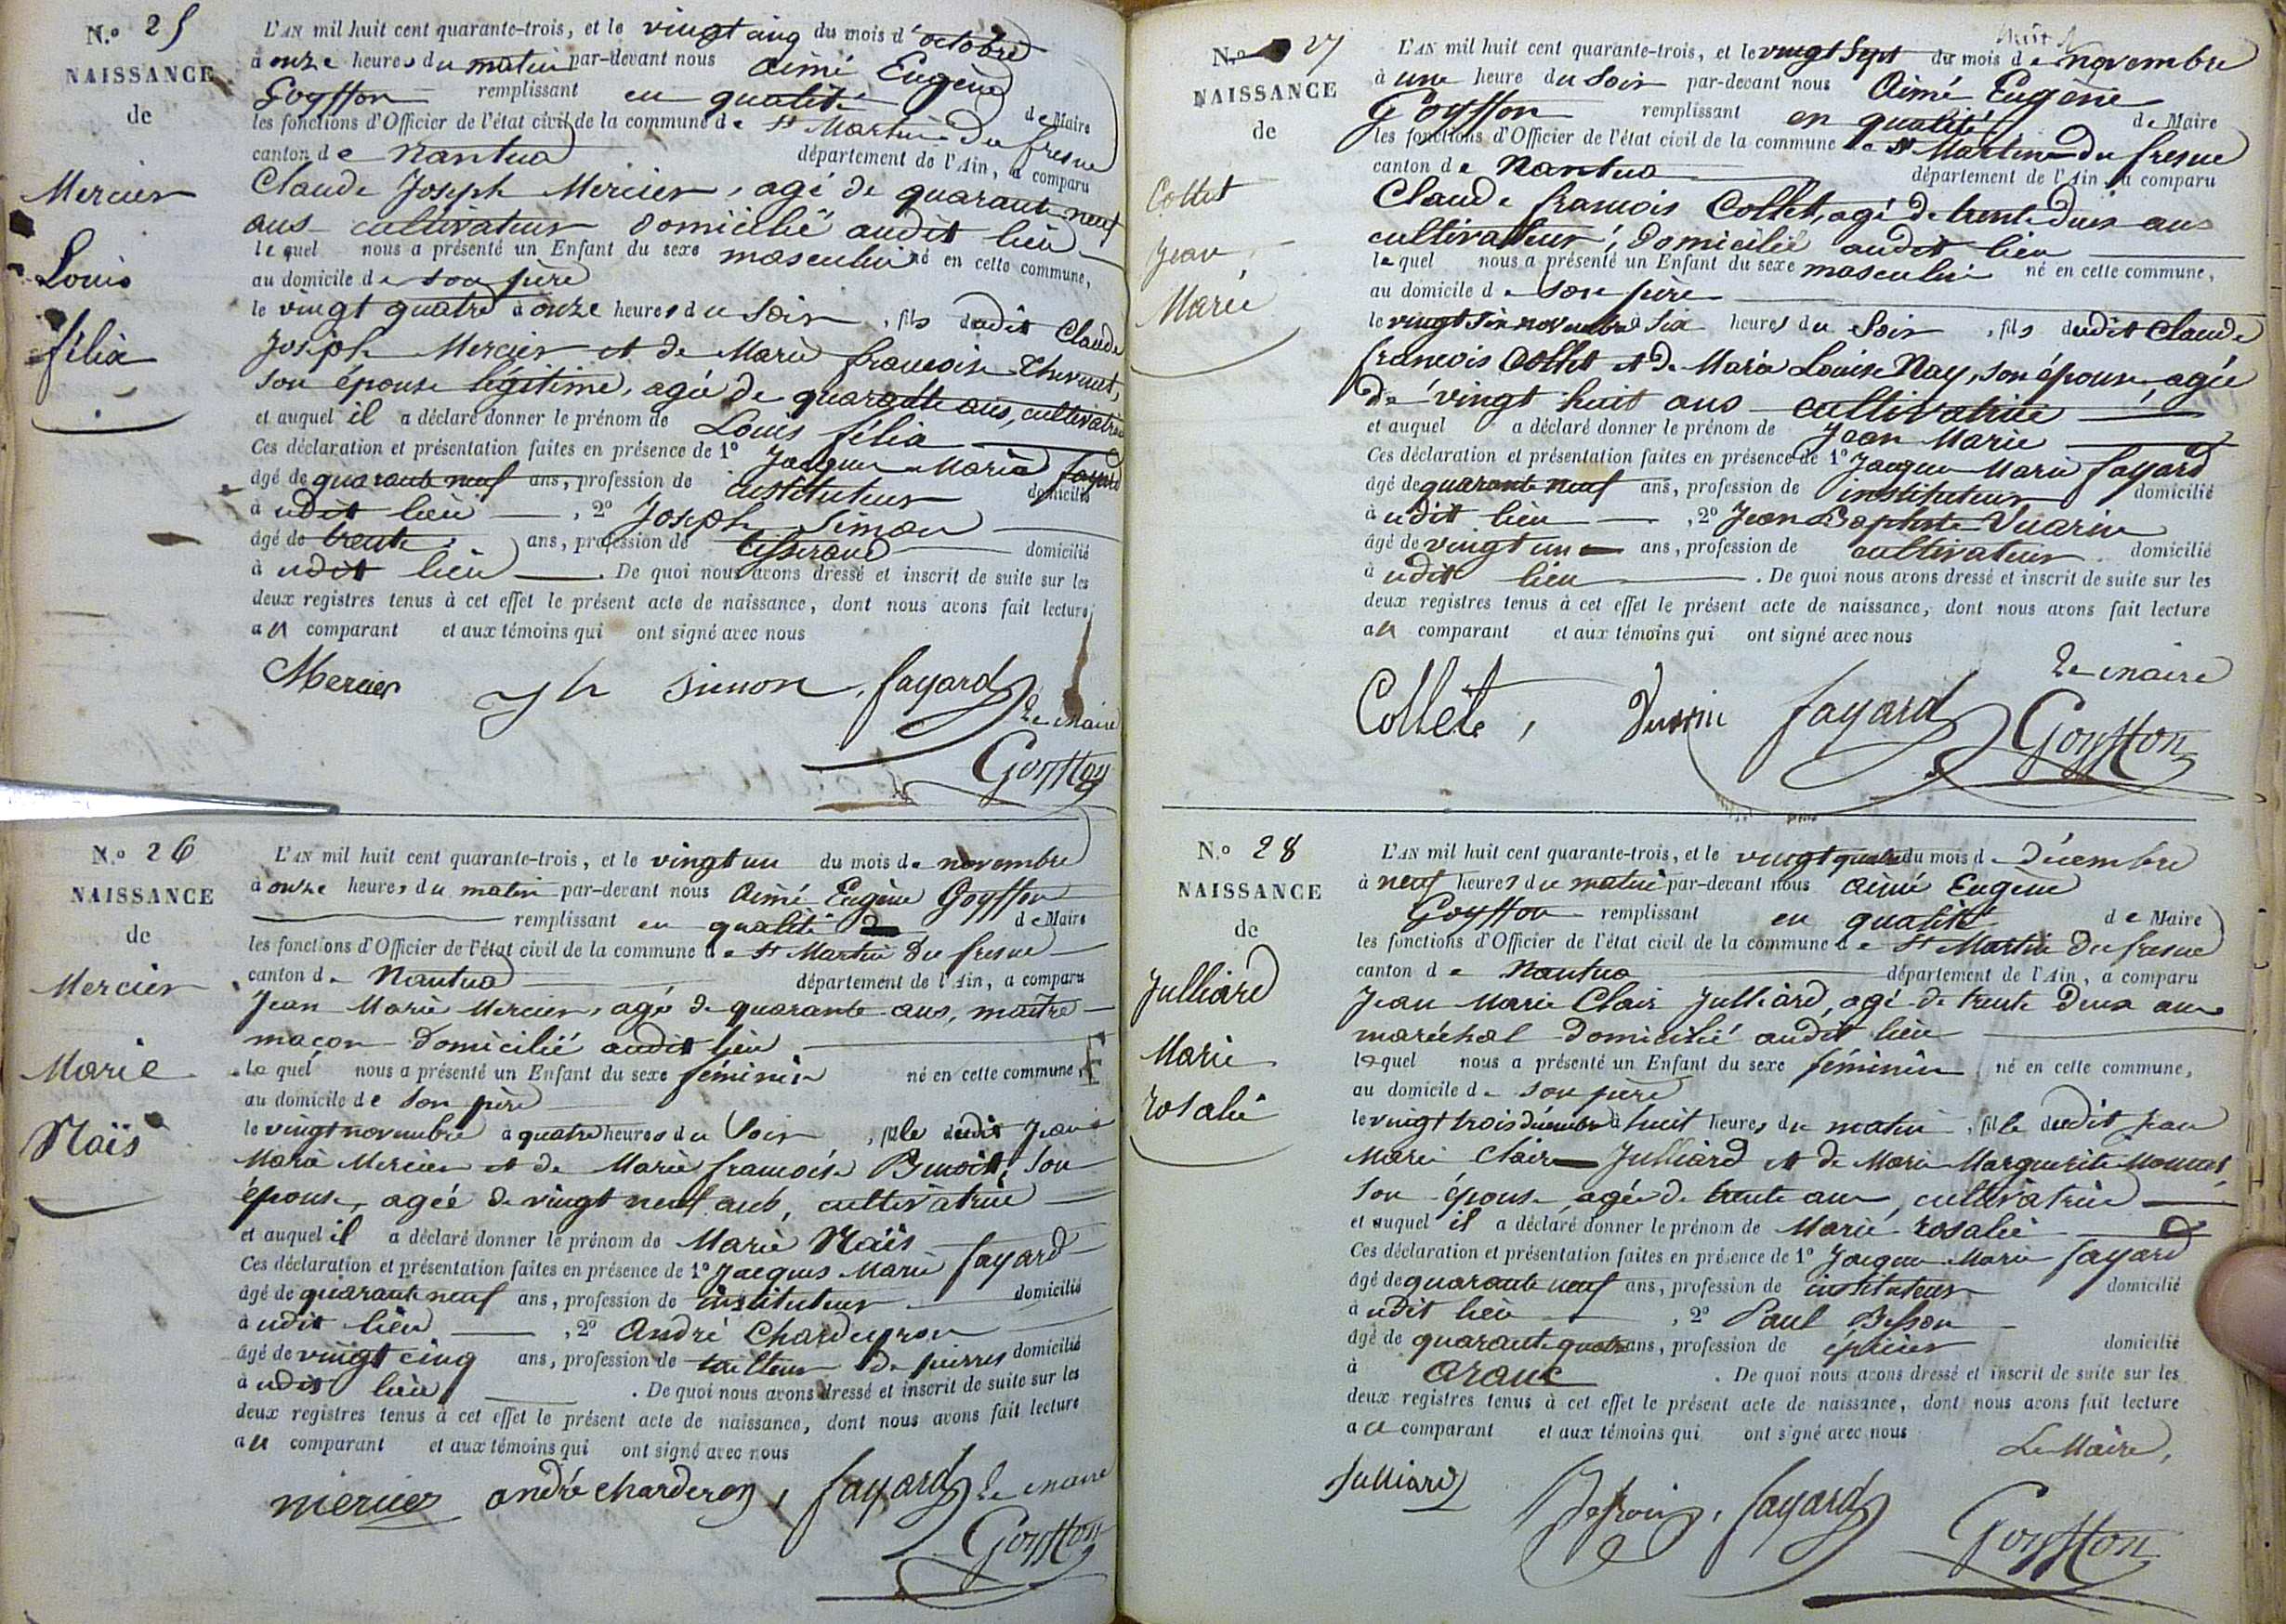 N.º 25
NAISSANCE
de
Mercier
Louis
félix
L'AN mil huit cent quarante-trois, et le vingt cinq du mois d'octobre
à onze heures du matin par-devant nous Aimé Eugène
Goyffon remplissant en qualité de Maire
les fonctions d'Officier de l'état civil de la commune de St Martin du fresne
canton de Nantua département de l'Ain, a comparu
Claude Joseph Mercier, agé de quarante neuf
ans cultivateur domicilié audit lieu
lequel nous a présenté un Enfant du sexe masculin né en cette commune,
au domicile de son père
le vingt quatre à onze heures du soir, fils dudit Claude
Joseph Mercier et de Marie françoise
son épouse légitime, agée de quarante ans, cultivatrice
et auquel il a déclaré donner le prénom de Louis félix
Ces déclaration et présentation faites en présence de 1º Jacques Marie fayard
âgé de quarante neuf ans, profession de instituteur domicilié
à udit lieu, 2º Joseph Simon
âgé de trente ans, profession de tisserand domicilié
à udit lieu. De quoi nous avons dressé et inscrit de suite sur les
deux registres tenus à cet effet le présent acte de naissance, dont nous avons fait lecture
au comparant et aux témoins qui ont signé avec nous
Mercier Jh Simon, fayard
Le maire
Goyffon
N.º 26
NAISSANCE
de
Mercier
Marie
Naïs
L'AN mil huit cent quarante-trois, et le vingt un du mois de novembre
à onze heures du matin par-devant nous Aimé Eugène Goyffon
remplissant en qualité de Maire
les fonctions d'Officier de l'état civil de la commune de St Martin du fresne
canton de Nantua département de l'Ain, a comparu
Jean Marie Mercier, agé de quarante ans, maître
maçon domicilié audit lieu
lequel nous a présenté un Enfant du sexe féminin né en cette commune,
au domicile de son père
le vingt novembre à quatre heures du soir, fille dudit Jean
Marie Mercier et de Marie françoise Benoit, son
épouse, agée de vingt neuf ans, cultivatrice
et auquel il a déclaré donner le prénom de Marie Naïs
Ces déclaration et présentation faites en présence de 1º Jacques Marie fayard
âgé de quarante neuf ans, profession de instituteur domicilié
à udit lieu, 2º André Charderon
âgé de vingt cinq ans, profession de tailleur de pierres domicilié
à udit lieu. De quoi nous avons dressé et inscrit de suite sur les
deux registres tenus à cet effet le présent acte de naissance, dont nous avons fait lecture
au comparant et aux témoins qui ont signé avec nous
mercier andré charderon, fayard Le maire
Goyffon
N.º 27
NAISSANCE
de
Collet
Jean
Marie
huit
L'AN mil huit cent quarante-trois, et le vingt sept du mois de novembre
à une heure du soir par-devant nous Aimé Eugène
Goyffon remplissant en qualité de Maire
les fonctions d'Officier de l'état civil de la commune de St Martin du fresne
canton de Nantua département de l'Ain, a comparu
Claude françois Collet, agé de trente deux ans
cultivateur, domicilié audit lieu
lequel nous a présenté un Enfant du sexe masculin né en cette commune,
au domicile de son père
le vingt six novembre à six heures du soir, fils dudit Claude
françois Collet et de Marie Louise Nay, son épouse, agée
de vingt huit ans cultivatrice
et auquel a déclaré donner le prénom de Jean Marie
Ces déclaration et présentation faites en présence de 1º Jacques Marie fayard
âgé de quarante neuf ans, profession de instituteur domicilié
à udit lieu, 2º Jean Baptiste Vuarin
âgé de vingt un ans, profession de cultivateur domicilié
à udit lieu. De quoi nous avons dressé et inscrit de suite sur les
deux registres tenus à cet effet le présent acte de naissance, dont nous avons fait lecture
au comparant et aux témoins qui ont signé avec nous
Le maire
Collet, fayard Goyffon
N.º 28
NAISSANCE
de
Julliard
Marie
rosalie
L'AN mil huit cent quarante-trois, et le vingt quatre du mois de Décembre
à neuf heures du matin par-devant nous Aimé Eugène
Goyffon remplissant en qualité de Maire
les fonctions d'Officier de l'état civil de la commune de St Martin du fresne
canton de Nantua département de l'Ain, a comparu
Jean Marie Clair Julliard, agé de trente deux ans
maréchal domicilié audit lieu
lequel nous a présenté un Enfant du sexe féminin né en cette commune,
au domicile de son père
le vingt trois décembre à huit heures du matin, fille dudit Jean
Marie Clair Julliard et de Marie Marguerite
son épouse agée de trente ans, cultivatrice
et auquel il a déclaré donner le prénom de Marie rosalie
Ces déclaration et présentation faites en présence de 1º Jacques Marie fayard
âgé de quarante neuf ans, profession de instituteur domicilié
à udit lieu, 2º Paul Besson
âgé de quarante quatre ans, profession de épicier domicilié
à aranc. De quoi nous avons dressé et inscrit de suite sur les
deux registres tenus à cet effet le présent acte de naissance, dont nous avons fait lecture
au comparant et aux témoins qui ont signé avec nous
Le Maire,
Julliard
fayard Goyffon